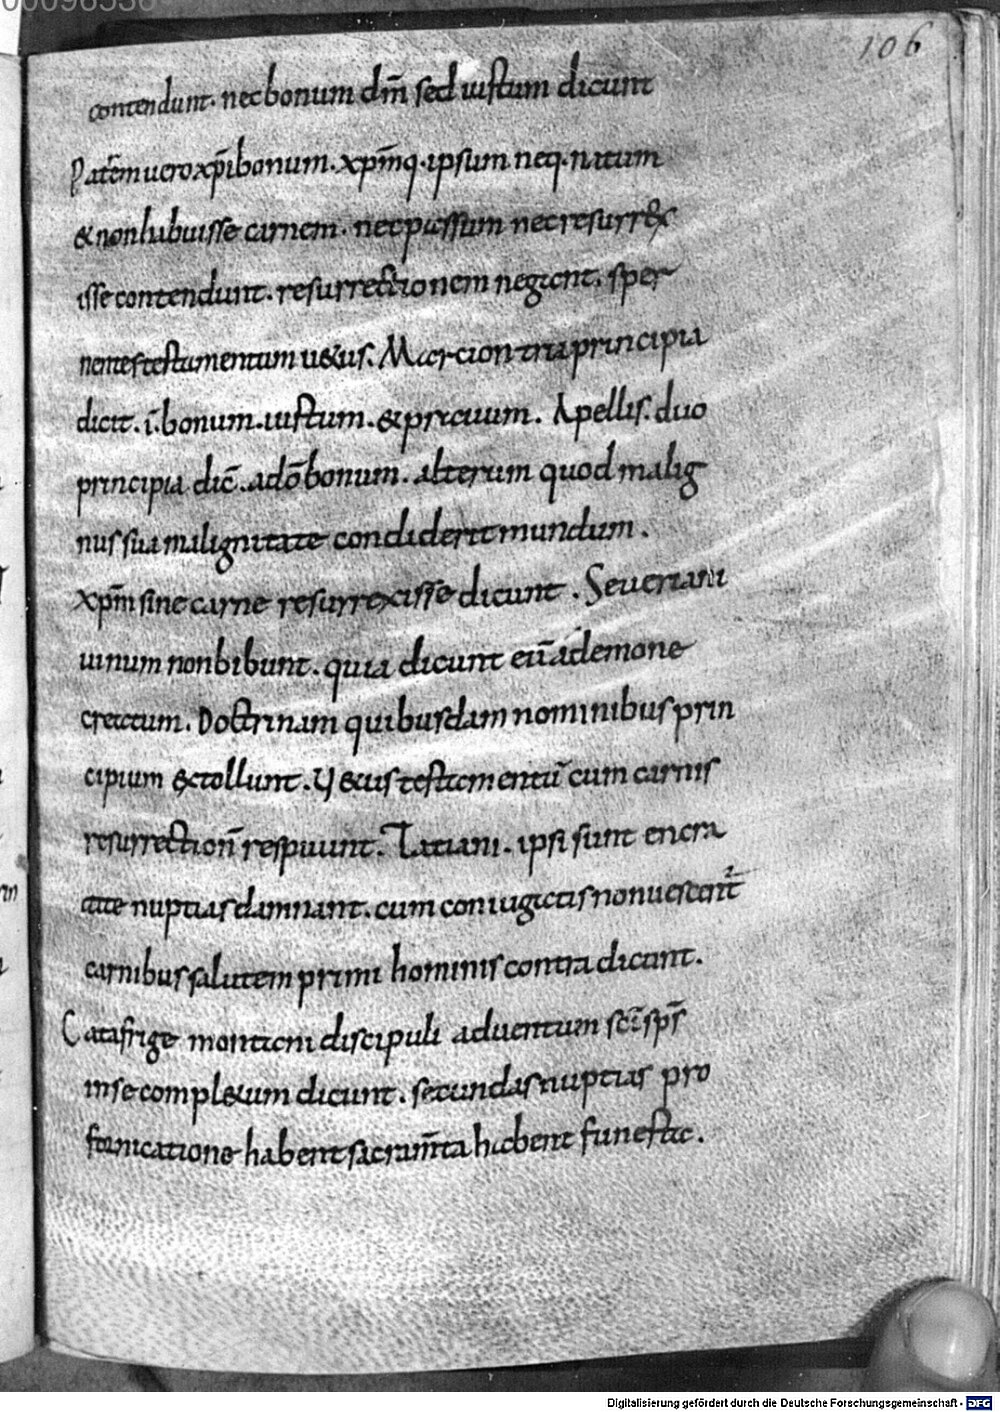 106
contendunt. nec bonum dm̄ sed iustum dicunt
Patrē m uero xp̄i bonum. xp̄mq. ipsum neq. natum
& non habuisse carnem. nec passum nec resurrex
isse contendunt. resurrectionem negant. sper
nentes testamentum u&us. Marcion tria principia
dicit. i. bonum. iustum. & prauum. Apellis. duo
principia dic̄. a dō bonum. alterum quod malig
nus sua malignitate condiderit mundum.
xp̄m sine carne resurrexisse dicunt. Seueriani
uinum non bibunt. quia dicunt eū a demone
creatum. Doctrinam quibusdam nominibus prin
cipium extollunt. U&us testamentū cum carnis
resurrectionē respuunt. Tatiani. ipsi sunt encra
tite nuptias damnant. cum coniugatis non uescent̄
carnibus salutem primi hominis contradicunt.
Catafrige montani discipuli aduentum sc̄i sp̄s
in se compl&um dicunt. secundas nuptias pro
fornicatione habent sacram̄ta habent funesta.
Digitalisierung gefördert durch die Deutsche Forschungsgemeinschaft - DFG